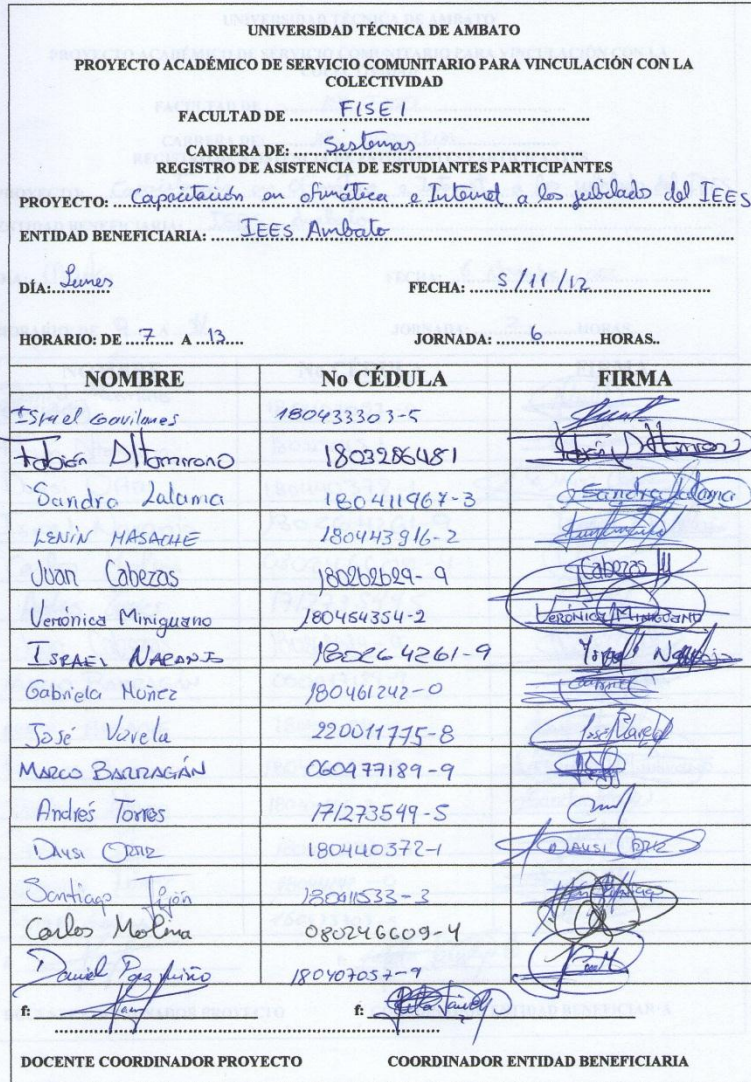 UNIVERSIDAD TÉCNICA DE AMBATO
PROYECTO ACADÉMICO DE SERVICIO COMUNITARIO PARA VINCULACIÓN CON LA
COLECTIVIDAD
FACULTAD DE FISEI
CARRERA DE: Sistemas
REGISTRO DE ASISTENCIA DE ESTUDIANTES PARTICIPANTES
PROYECTO: Capacitación en ofimática e Internet a los jubilado del IEES
ENTIDAD BENEFICIARIA: IEES Ambato
DÍA: Lunes FECHA: 5/11/12
HORARIO: DE 7 A 13 JORNADA: 6 HORAS..
NOMBRE No CÉDULA FIRMA
Israel Gavilanes 180433303-5
Fabián Altamirano 1803286481 Fabián Altamirano
Sandra Lalama 180411967-3 Sandra Lalama
LENIN MASACHE 180443916-2
Juan Cabezas 180262629-9 Cabezas
Verónica Miniguano 180454354-2 Verónica Miniguano
ISRAEL NARANJO 180264261-9
Gabriela Núñez 180461242-0
José Varela 220011775-8 José Varela
MARCO BARRAGÁN 060477189-9
Andrés Torres 171273549-5
DAYSI ORTIZ 180440372-1 DAYSI ORTIZ
Santiago 18041533-3
Carlos Molina 080246609-4
Daniel 180407057-9
f: f:
DOCENTE COORDINADOR PROYECTO COORDINADOR ENTIDAD BENEFICIARIA